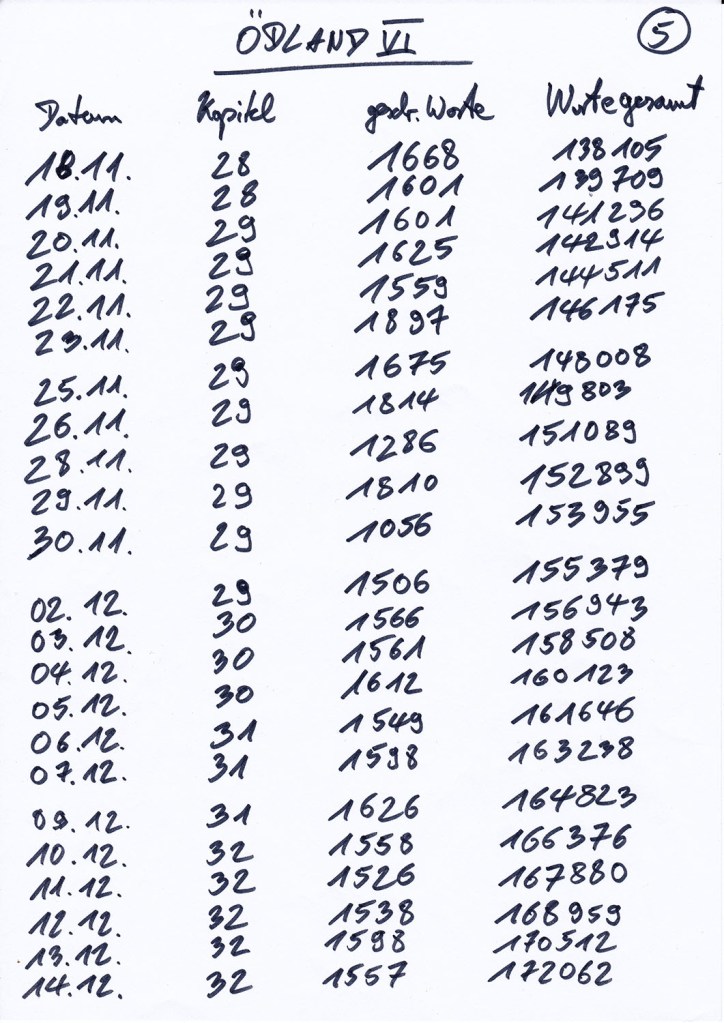 ÖDLAND VI
5
Datum Kapitel geschr. Worte Worte gesamt
18.11. 28 1668 138105
19.11. 28 1601 139709
20.11. 29 1601 141296
21.11. 29 1625 142914
22.11. 29 1559 144511
23.11. 29 1897 146175
25.11. 29 1675 148008
26.11. 29 1814 149803
28.11. 29 1286 151089
29.11. 29 1810 152899
30.11. 29 1056 153955
02.12. 29 1506 155379
03.12. 30 1566 156943
04.12. 30 1561 158508
05.12. 30 1612 160123
06.12. 31 1549 161646
07.12. 31 1598 163238
09.12. 31 1626 164823
10.12. 32 1558 166376
11.12. 32 1526 167880
12.12. 32 1538 168959
13.12. 32 1598 170512
14.12. 32 1557 172062